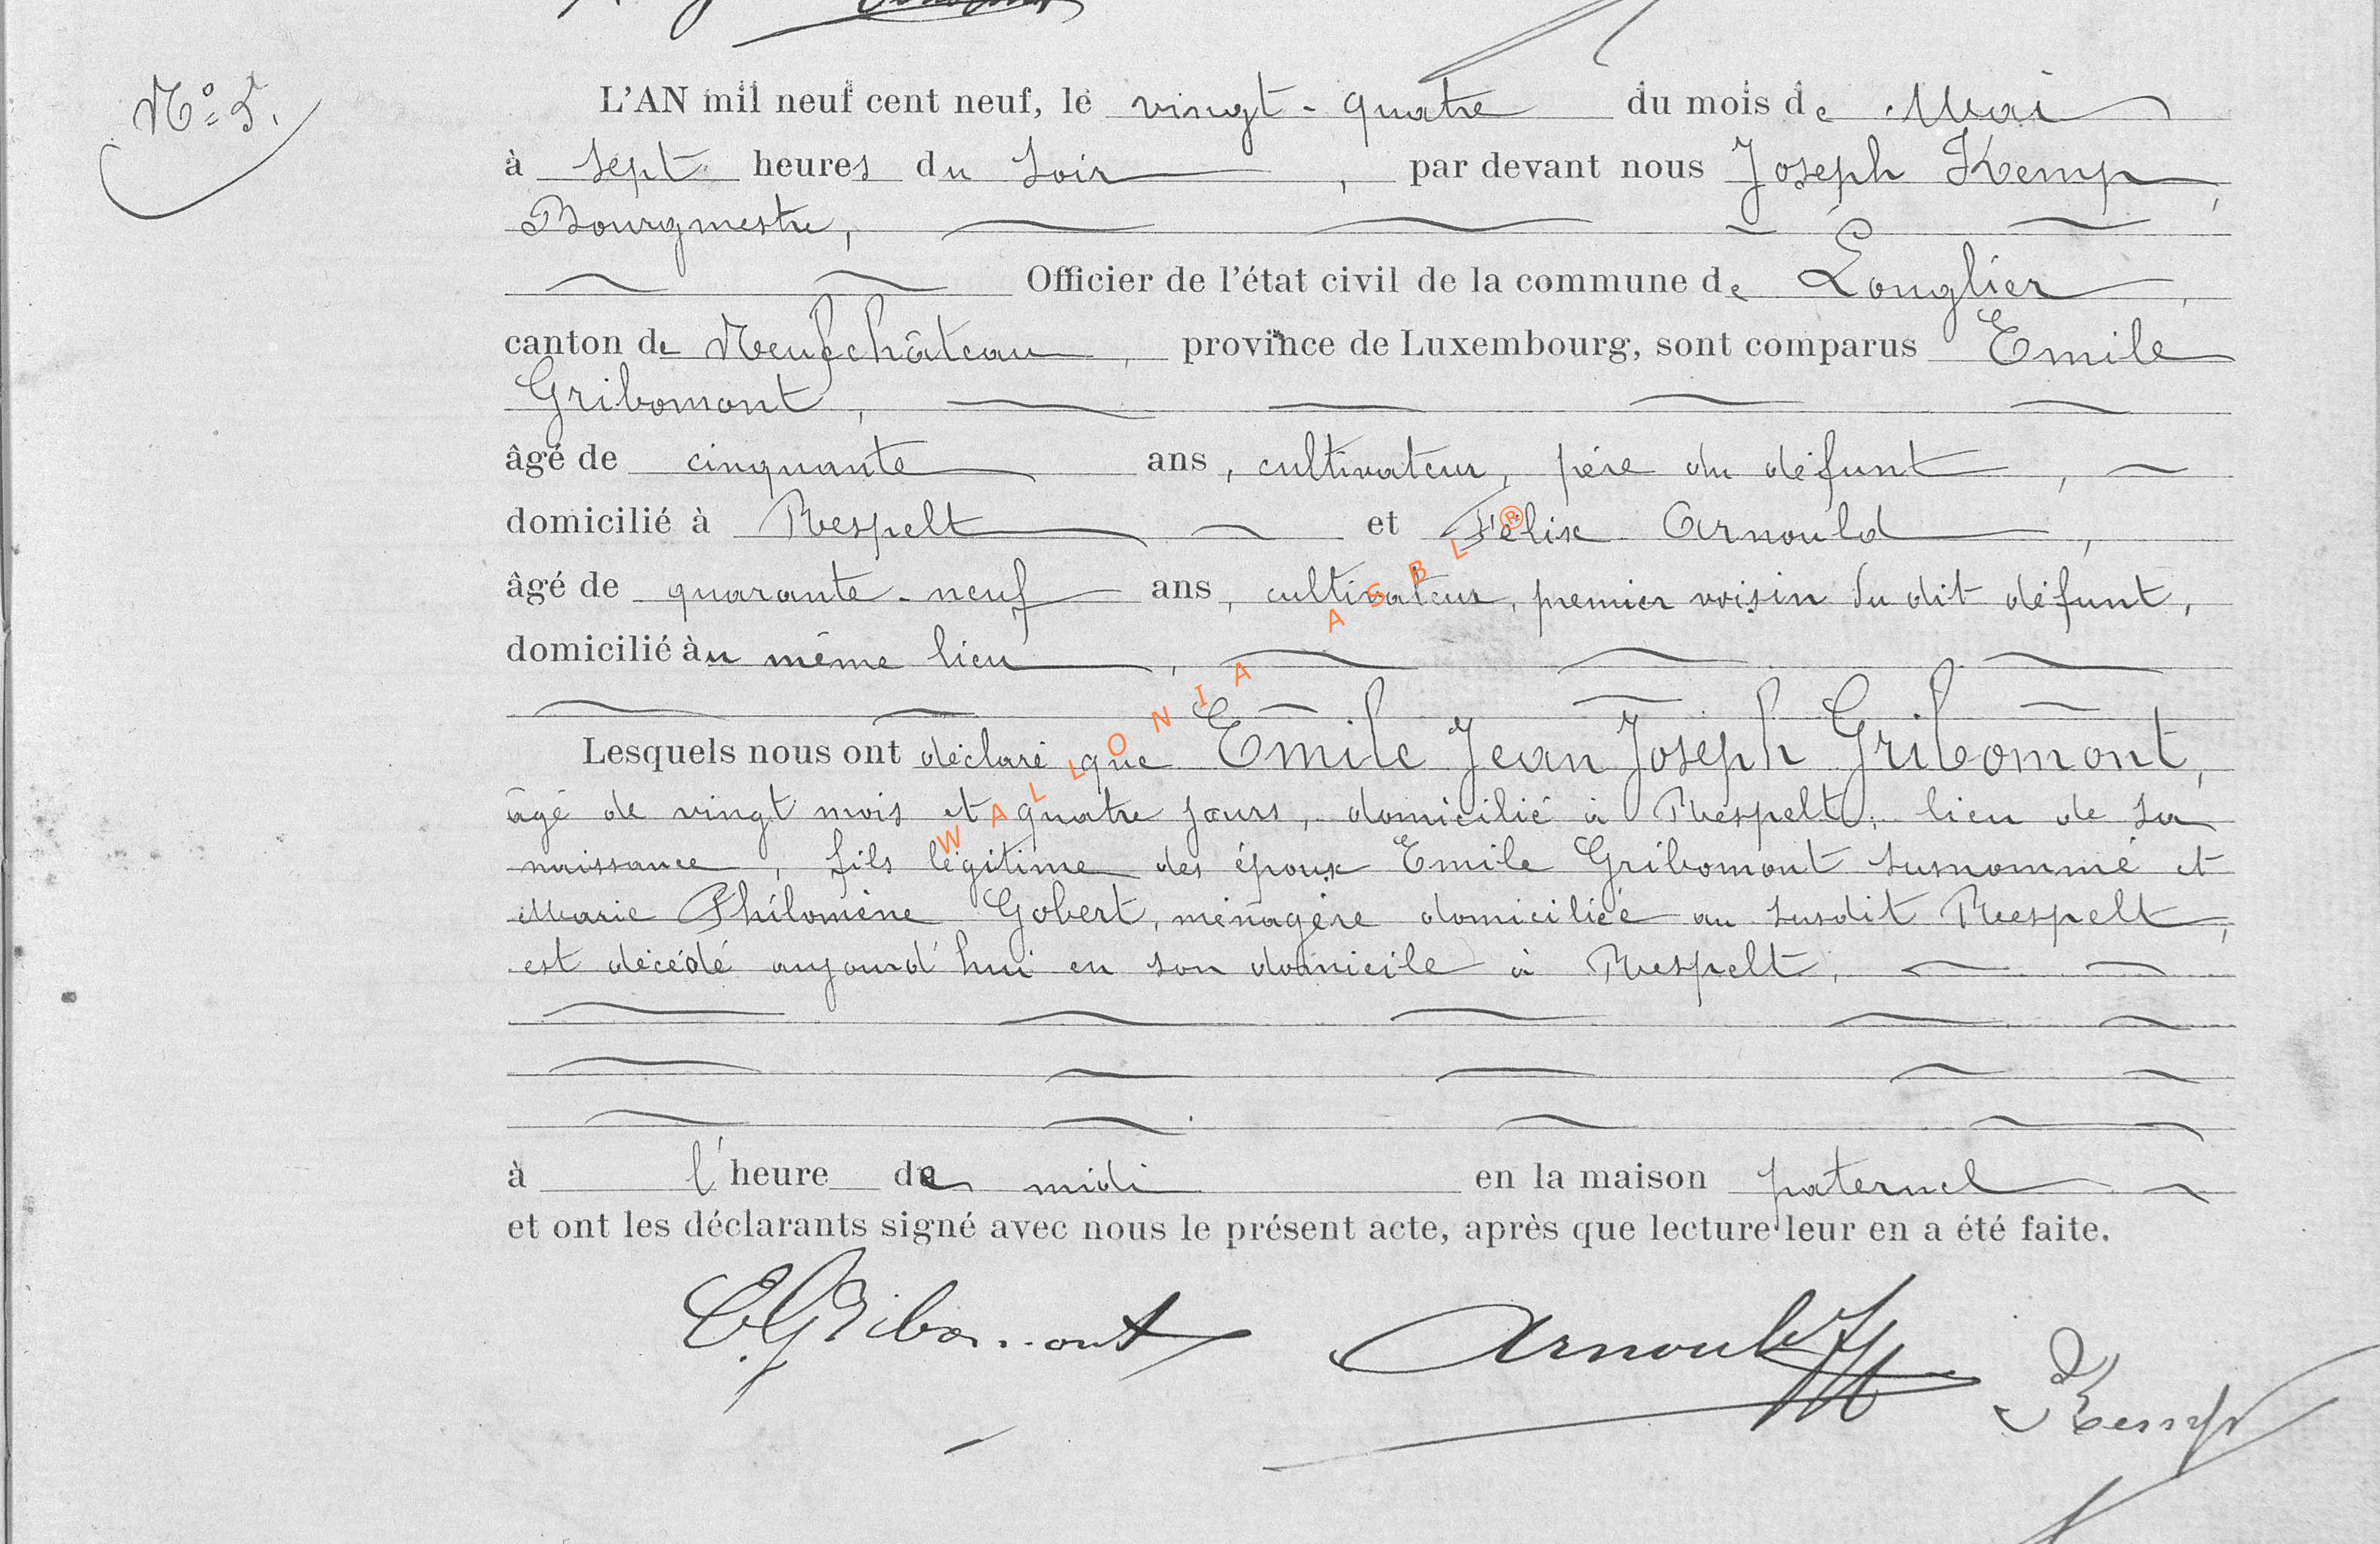 N° 5.
L'AN mil neuf cent neuf, le vingt-quatre du mois de Mai
à sept heures du soir, par devant nous Joseph Kemp,
Bourgmestre,
Officier de l'état civil de la commune de Longlier,
canton de Neufchâteau, province de Luxembourg, sont comparus Emile
Gribomont,
âgé de cinquante ans, cultivateur, père du défunt,
domicilié à Respelt et Félix Arnould,
âgé de quarante-neuf ans, cultivateur, premier voisin du dit défunt,
domicilié au même lieu,
Lesquels nous ont déclaré que Emile Jean Joseph Gribomont,
âgé de vingt mois et quatre jours, domicilié à Respelt, lieu de sa
naissance, fils légitime des époux Emile Gribomont susnommé et
Marie Philomène Gobert, ménagère domiciliée au susdit Respelt,
est décédé aujourd'hui en son domicile à Respelt,
à l'heure de midi en la maison paternel
et ont les déclarants signé avec nous le présent acte, après que lecture leur en a été faite.
E. Gribomont Arnould J Kemp
WALLONIA ASBL ®